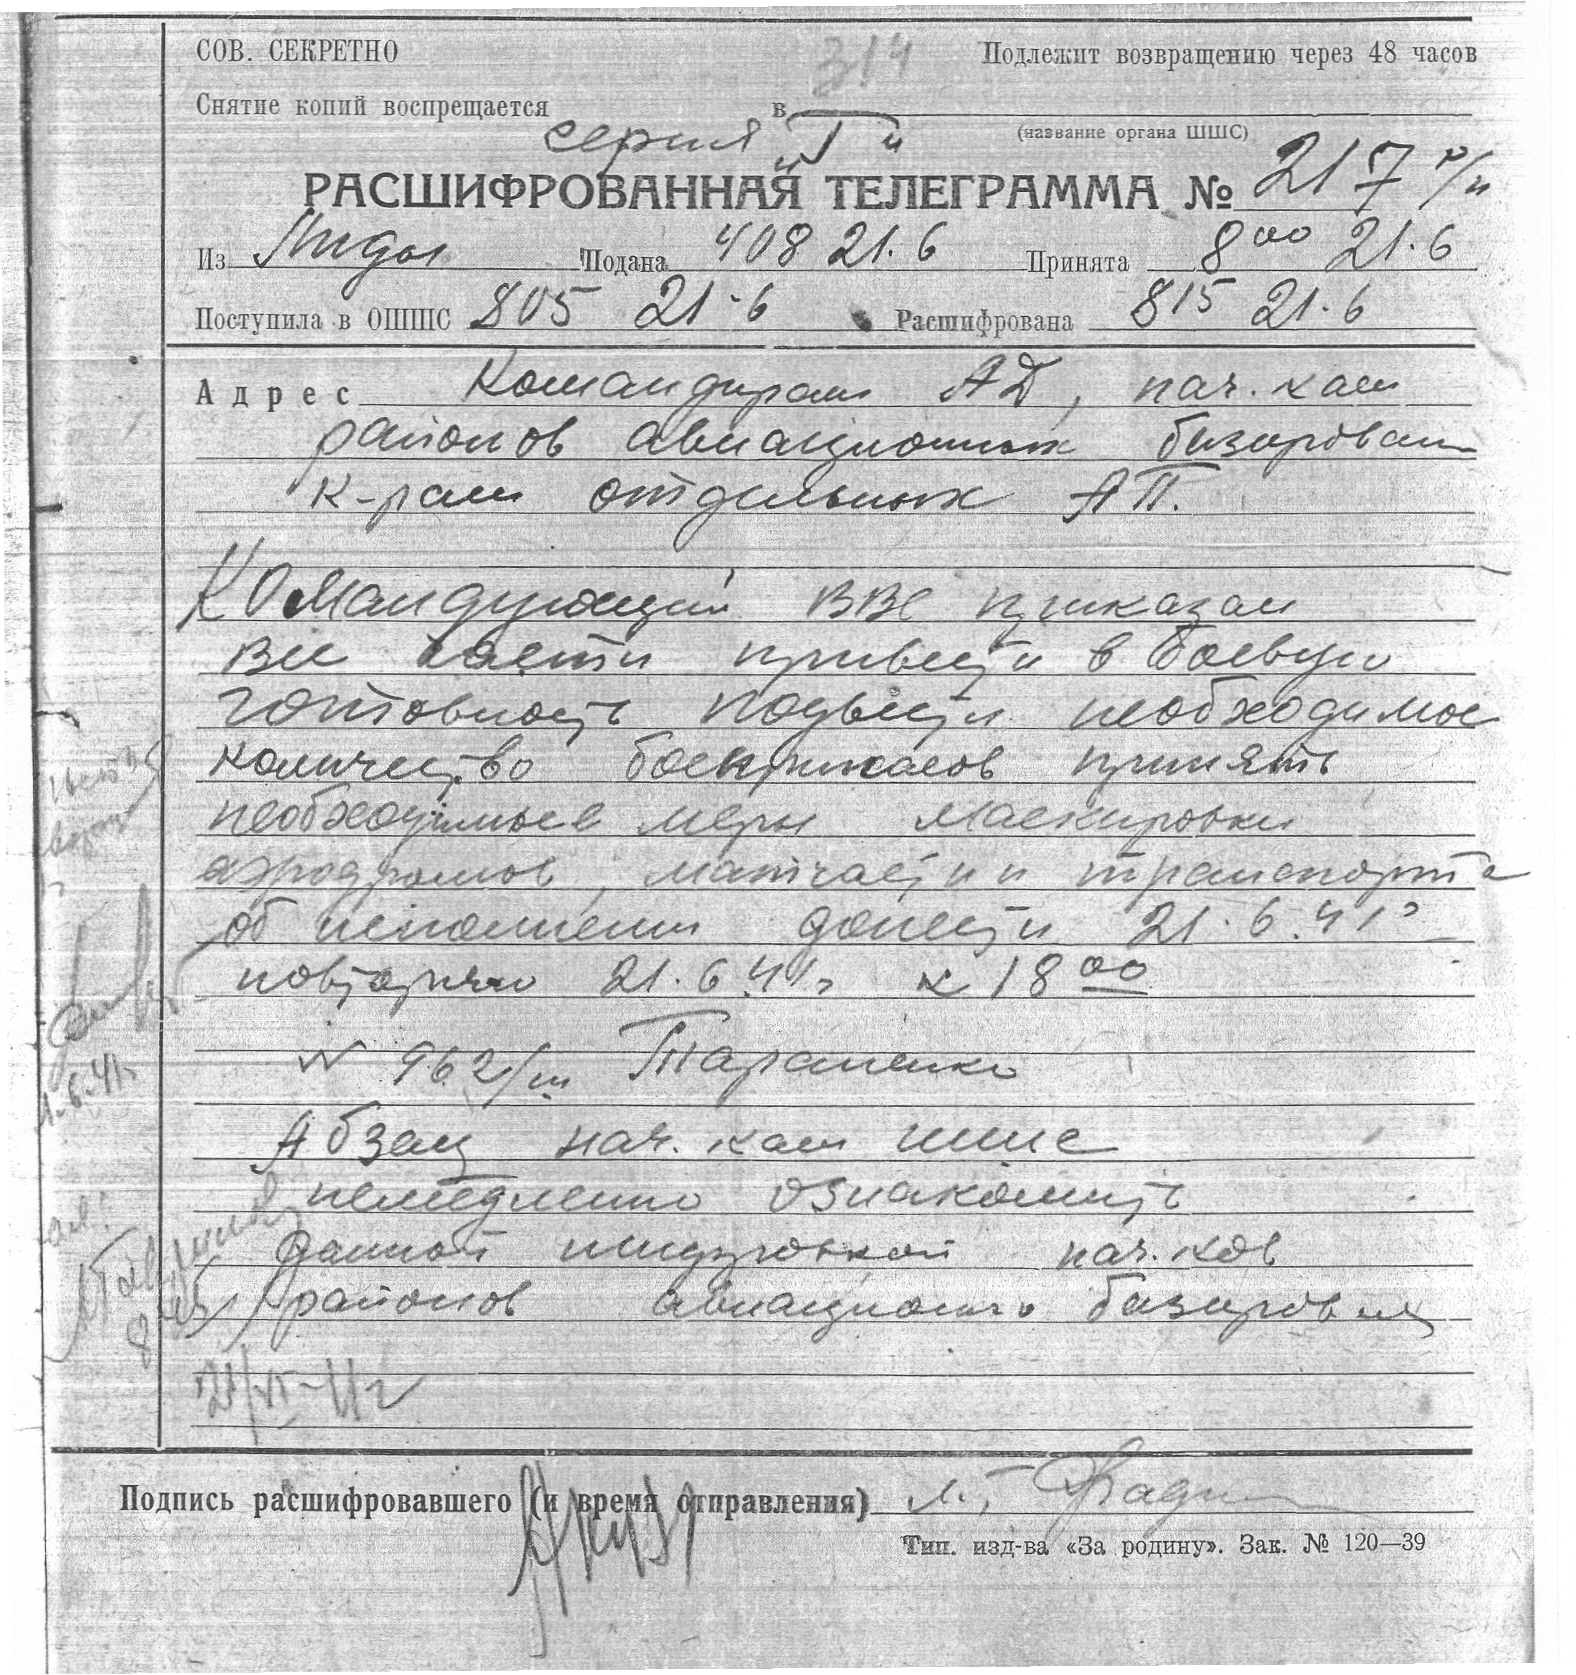 314
СОВ. СЕКРЕТНО
Подлежит возвращению через 48 часов
Снятие копий воспрещается
в
(название органа ШШС)
серия "Г"
РАСШИФРОВАННАЯ ТЕЛЕГРАММА № 217
Из Лиды Подана 408 21.6 Принята 8 00 21.6
Поступила в ОШШС 805 21.6 Расшифрована 815 21.6
Адрес Командирам АД, нач.кам
районов авиационных базирован
к-рам отдельных АП.
Командующий ВВС приказал
все части привести в боевую
готовность подвести необходимое
количество боеприпасов принять
необходимые меры маскировки
аэродромов, матчасти и транспорта
об исполнении донести 21.6.41г
повторяю 21.6.41г к 18 00
№ 962/ш Тараненко
Абзац нач.кам шшс
немедленно ознакомить
данной шифровкой нач.ков
районов авиационно базиров
21/VI-41г
Подпись расшифровавшего (и время отправления)
Тип. изд-ва «За родину». Зак. № 120—39